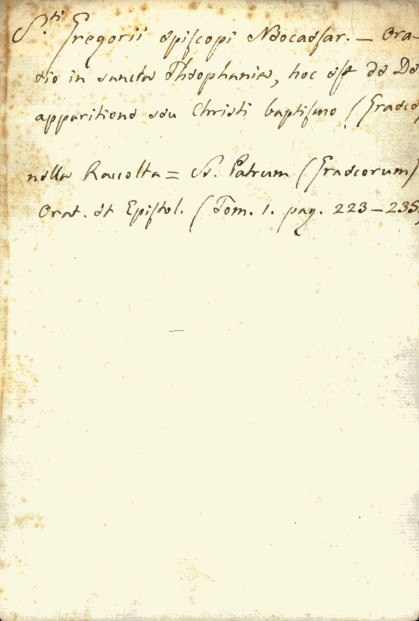 S.ti Gregorii episcopi Neocaesar. — Ora-
tio in sancta Theophania, hoc est de De
apparitione seu Christi baptismo (Graeco
nella Raccolta = SS. Patrum (Graecorum)
Orat. et Epistol. (Tom. 1. pag. 223–235,